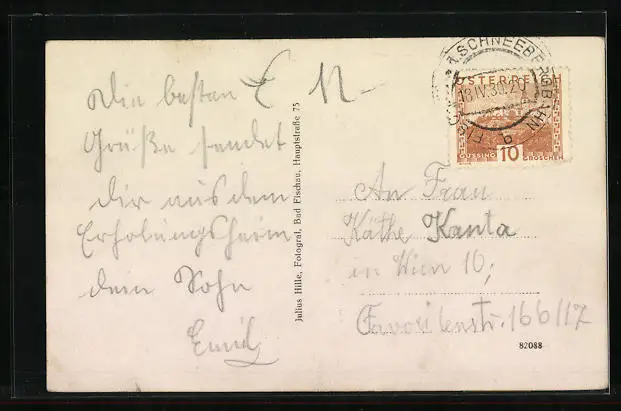 Die besten
Grüße sendet
Dir aus dem
Erholungsheim
dein Sohn
Emil
E 12-
Julius Hille, Fotograf, Bad Fischau, Hauptstraße 75
SCHNEEBERGBAHN
18.IV.30.20
b
ÖSTERREICH
GÜSSING 10 GROSCHEN
An Frau
Käthe Kanta
in Wien 10,
Favoritenstr. 166/17
82088